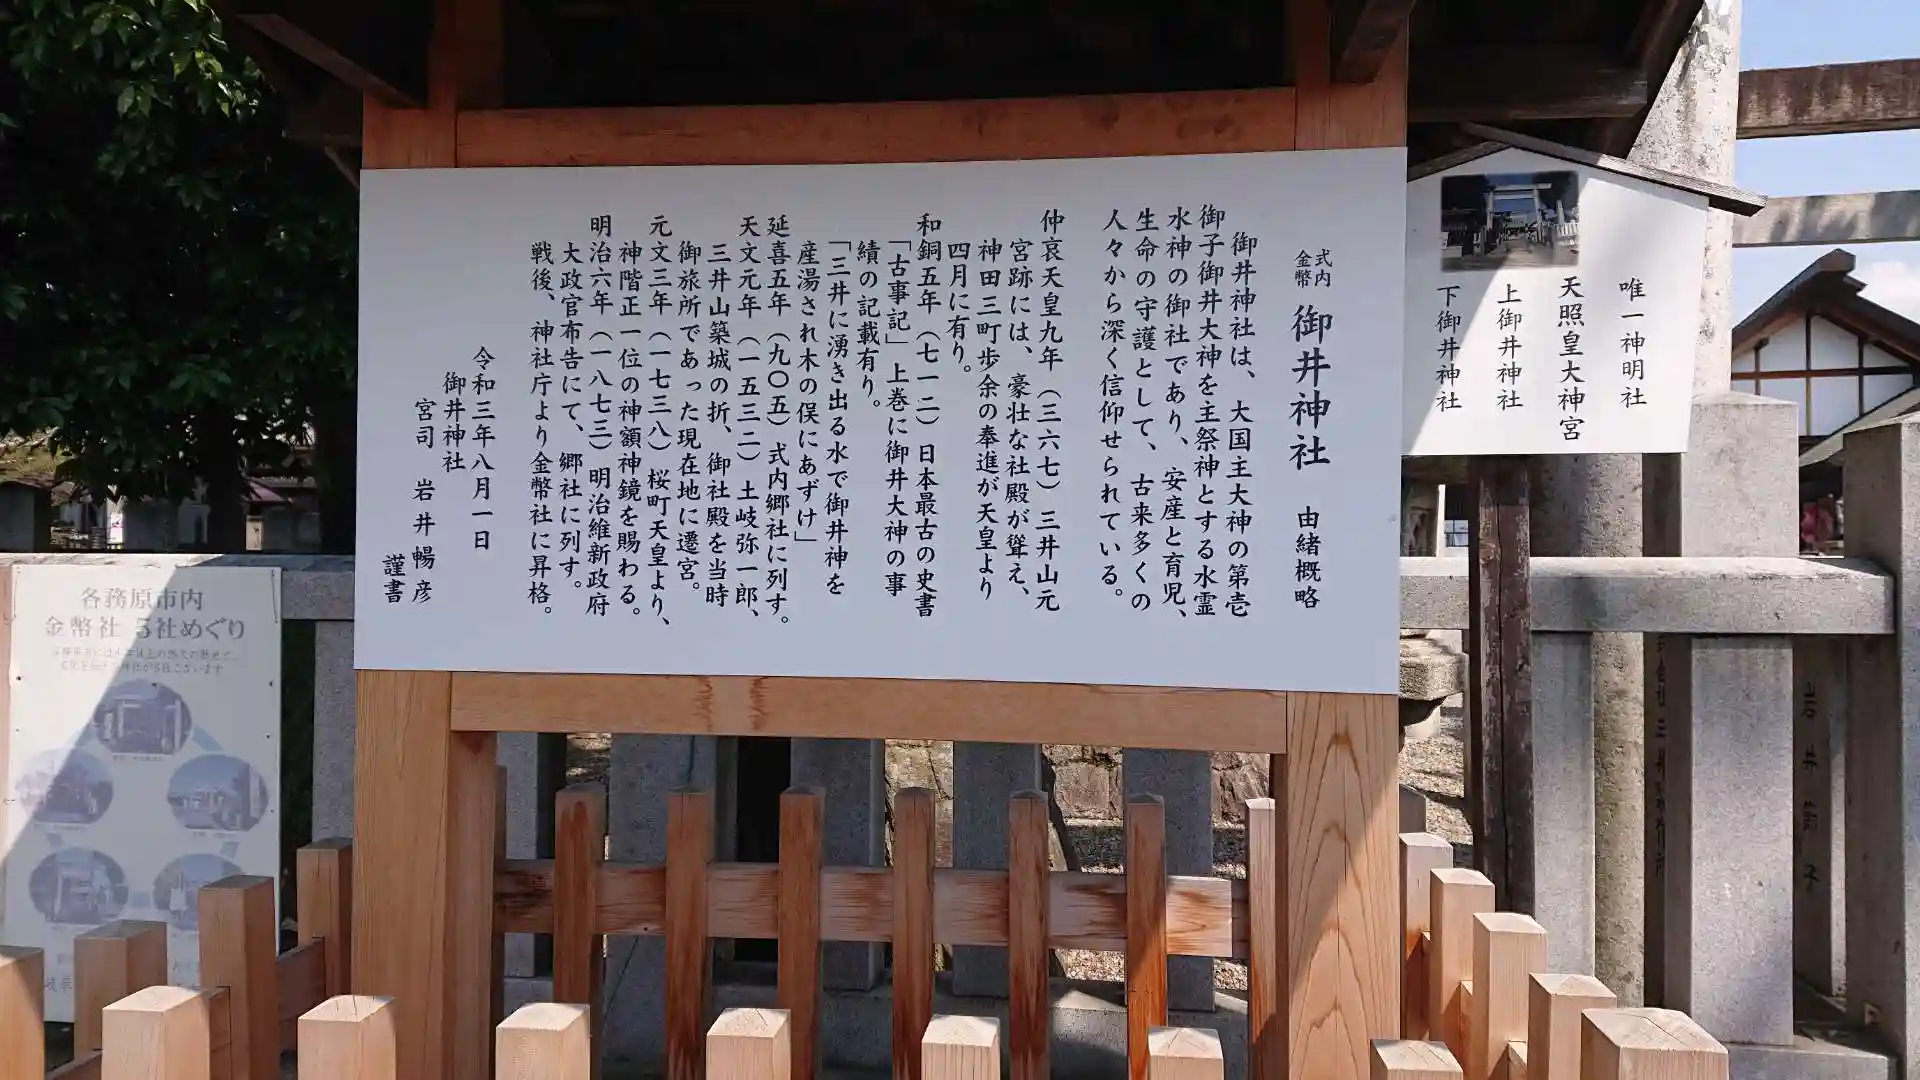 式内
金幣
御井神社 由緒概略
御井神社は、大国主大神の第壱
御子御井大神を主祭神とする水霊
水神の御社であり、安産と育児、
生命の守護として、古来多くの
人々から深く信仰せられている。
仲哀天皇九年（三六七）三井山元
宮跡には、豪壮な社殿が聳え、
神田三町歩余の奉進が天皇より
四月に有り。
和銅五年（七一二）日本最古の史書
「古事記」上巻に御井大神の事
績の記載有り。
「三井に湧き出る水で御井神を
産湯され木の俣にあずけ」
延喜五年（九〇五）式内郷社に列す。
天文元年（一五三二）土岐弥一郎、
三井山築城の折、御社殿を当時
御旅所であった現在地に遷宮。
元文三年（一七三八）桜町天皇より、
神階正一位の神額神鏡を賜わる。
明治六年（一八七三）明治維新政府
大政官布告にて、郷社に列す。
戦後、神社庁より金幣社に昇格。
令和三年八月一日
御井神社
宮司 岩井暢彦
謹書
唯一神明社
天照皇大神宮
上御井神社
下御井神社
各務原市内
金幣社 5社めぐり
岩井節子